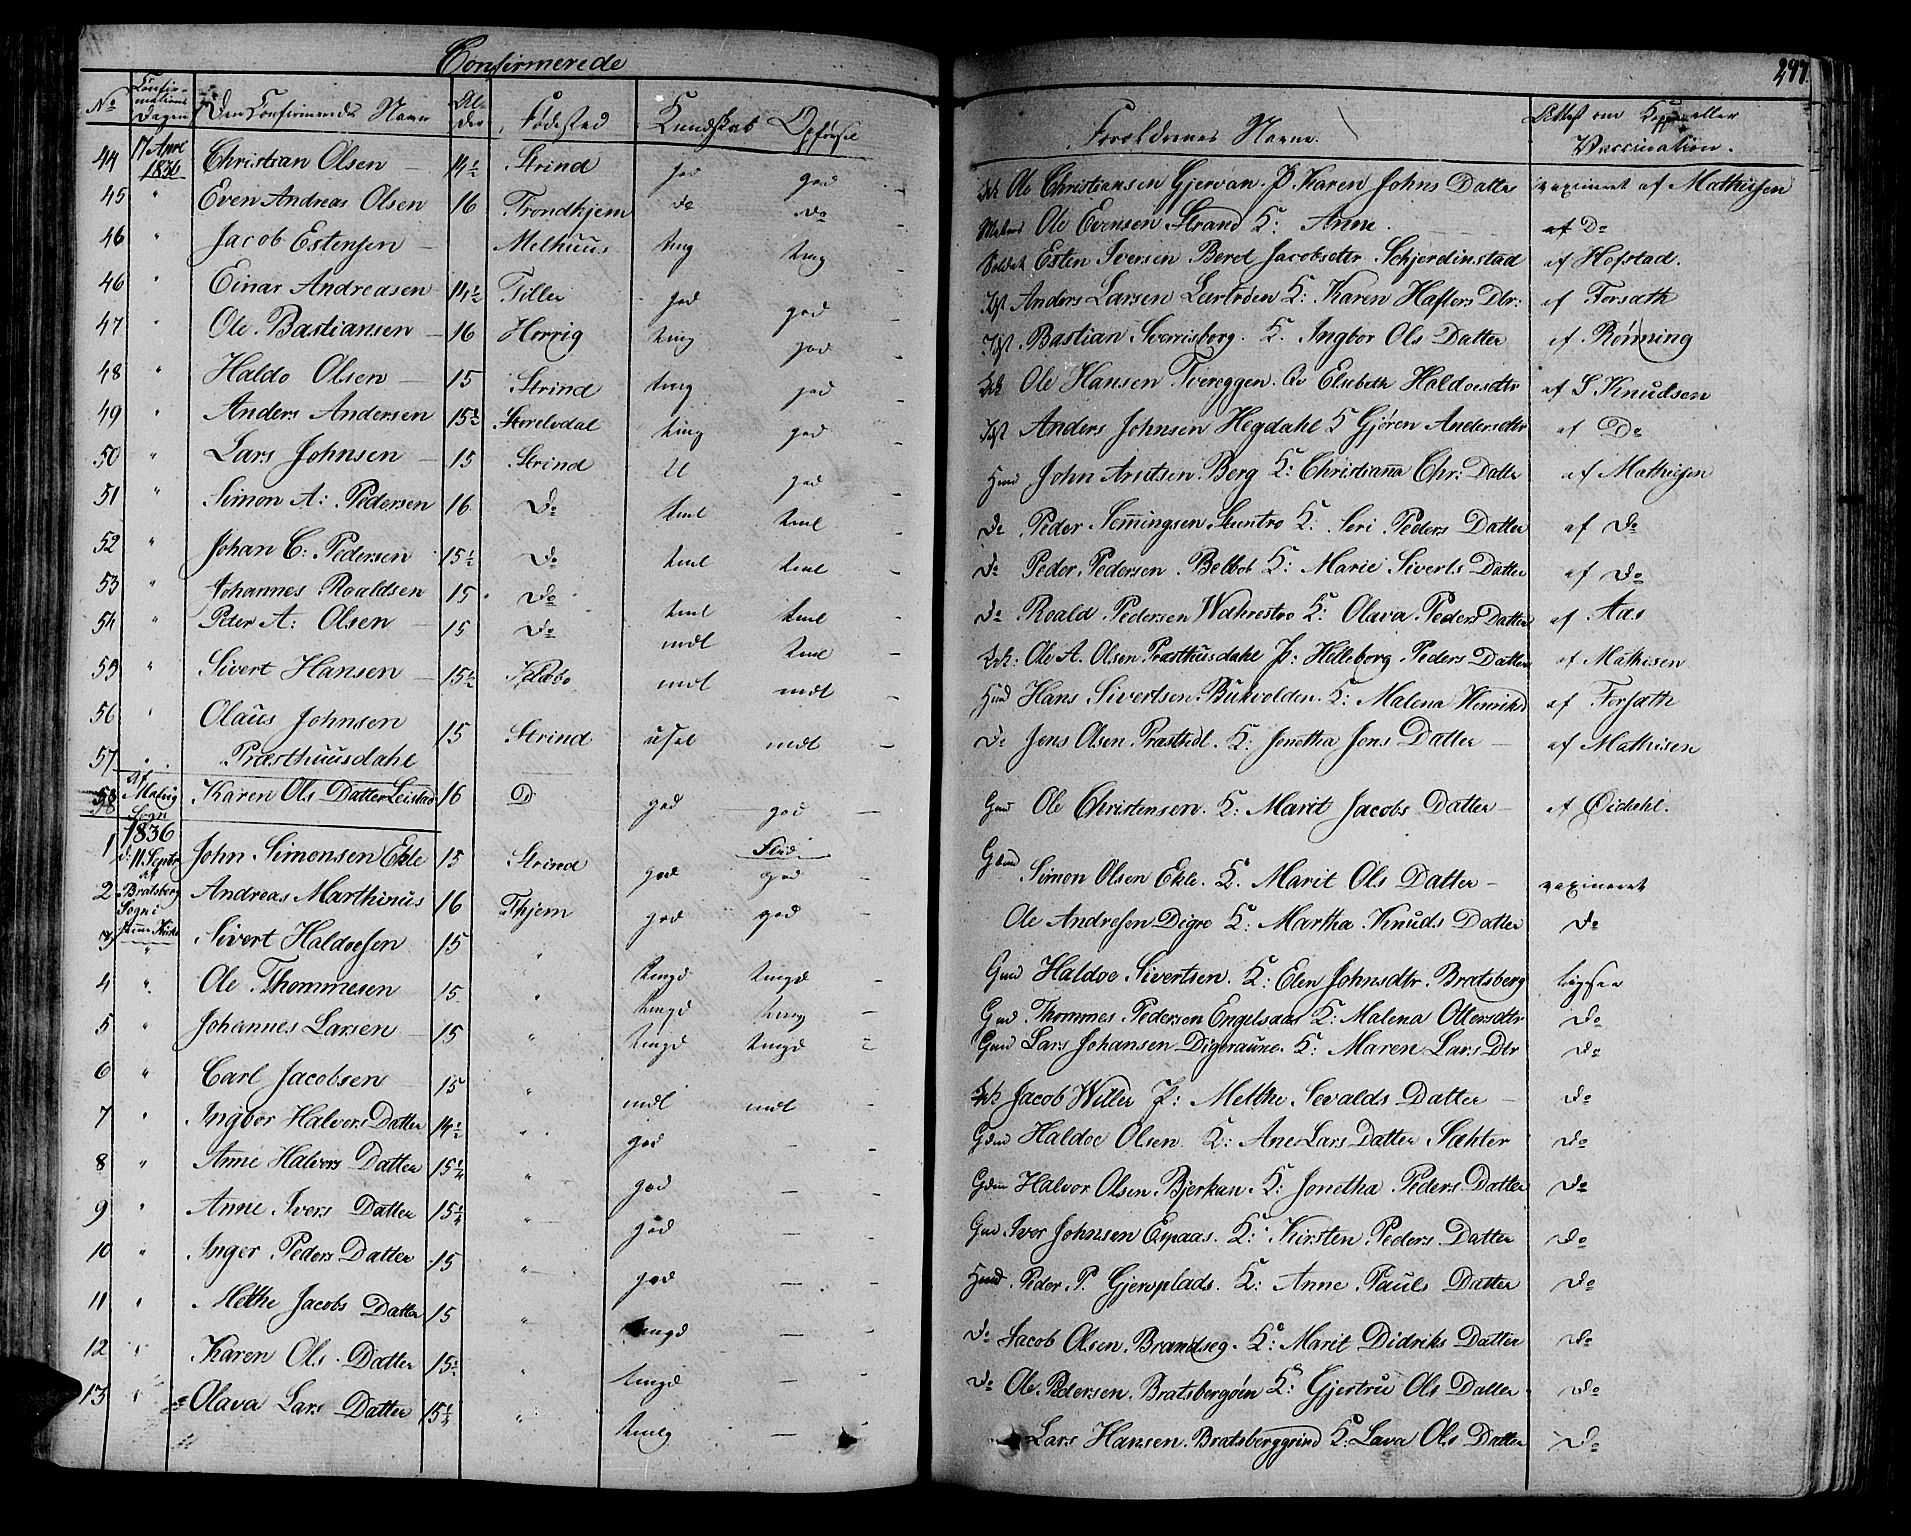 Confirmerede
No Confirmations Dagen Den Confirmerends Navn Alder Fødested Kundskab Opførsel
44 17 April 1836 Christian Olsen 14½ Strind god god
45 " Even Andreas Olsen 16 Trondhjem do do
46 " Jacob Estensen Melhuus
46 " Einar Andreasen 14½ Tiller god god
47 " Ole Bastiansen 16 Horrig god
48 " Haldo Olsen 15 Strind god
49 " Anders Andersen 15½ god
50 " Lars Johnsen 15 Strind god
51 " Simon A: Pedersen 16 Do
52 " Johan C: Pedersen 15½ Do
53 " Johannes Roaldsen 15 Do
54 " Peter A: Olsen 15 Do mdl
55 " Sivert Hansen 15½ Klæbo mdl mdl
56 " Olaus Johnsen 15 Strind mdl
57 " Præsthuusdahl
58 af Malvig Sogn Karen Ols Datter Leistad 16 D god god
1 1836 d. 11 Septr John Simonsen Ekle 15 Strind god god
2 af Bratsberg Sogn Andreas Marthinus 16 Thjem god god
3 " Sivert Haldoesen 15 "
4 " Ole Thommesen 15 "
5 " Johannes Larsen 15 "
6 " Carl Jacobsen 15 " mdl mdl
7 " Ingbor Halvors Datter 14½ " god —
8 " Anne Halvors Datter 15¼ " god —
9 " Anne Ivers Datter 15¼ " god —
10 " Inger Peders Datter 15 " god —
11 " Methe Jacobs Datter 15 " —
12 " Karen Ols Datter 15 " —
13 " Olava Lars Datter 15¼ " —
297
Forældrenes Navne. Attest om Kopper eller Vaccination.
Ole Christiansen Gjervan. P. Karen Johns Datter vaxineret af Mathiesen
Ole Evensen Strand K: Anne. af Do
Soldat Esten Iversen Berel Jacobsdtr Schjerdinstad af Hofstad.
Anders Larsen Lertrøen K: Karen Haftors Dtr: af Forsæth
Bastian Sverrisborg. K. Ingbor Ols Datter af Rønning
Ole Hansen Tvereggen. Elsebeth Haldoesdtr af S Knudsen
Anders Johnsen Hegdahl K Gjøren Andersdtr af Do
Huusd John Arndtsen Berg K: Christianna Chr: Datter af Mathiesen
Do Peder Semingsen Stuntro K: Seri Peders Datter af Do
Do Peder Pedersen Belbob K: Marie Siverts Datter af Do
Do Roald Pedersen Wahrestro K: Olava Peders Datter af Aas
Ole A. Olsen Præsthusdahl P: Helleborg Peders Datter af Mathisen
Hans Sivertsen Bukvolden. K: Malena Henriks af Forsæth
Do Jens Olsen Præsthdl. K: Jonetha Jens Datter af Mathisen
Gmd Ole Christensen. K: Marit Jacobs Datter af Øidahl.
Gmd Simon Olsen Ekle. K. Marit Ols Datter vaxineret
Ole Andresen Digre K: Martha Knuds Datter Do
Gmd Haldoe Sivertsen. K: Elen Johnsdtr. Bratsberg ligesaa
Gmd Thommes Pedersen Engelsaas K: Malena Ottersdtr Do
Gmd Lars Johansen Digeraune. K: Maren Lars Dtr Do
Jacob Willer P: Methe Sevalds Datter Do
Gmd Haldoe Olsen K: Ane Lars Datter Sæhter Do
Gmd Halvor Olsen. Bjerkan. K: Jonetha Peders Datter Do
Gmd Iver Johnsen Espaas. K: Kirsten Peders Datter Do
Peder P. Gjervplads. K: Anne Pauls Datter Do
Do Jacob Olsen. Brandseg. K: Marit Didriks Datter Do
Do Ole Pedersen. Bratsbergøen K: Gjertru Ols Datter Do
Lars Hansen. Bratsberggrind K: Lava Ols Datter Do